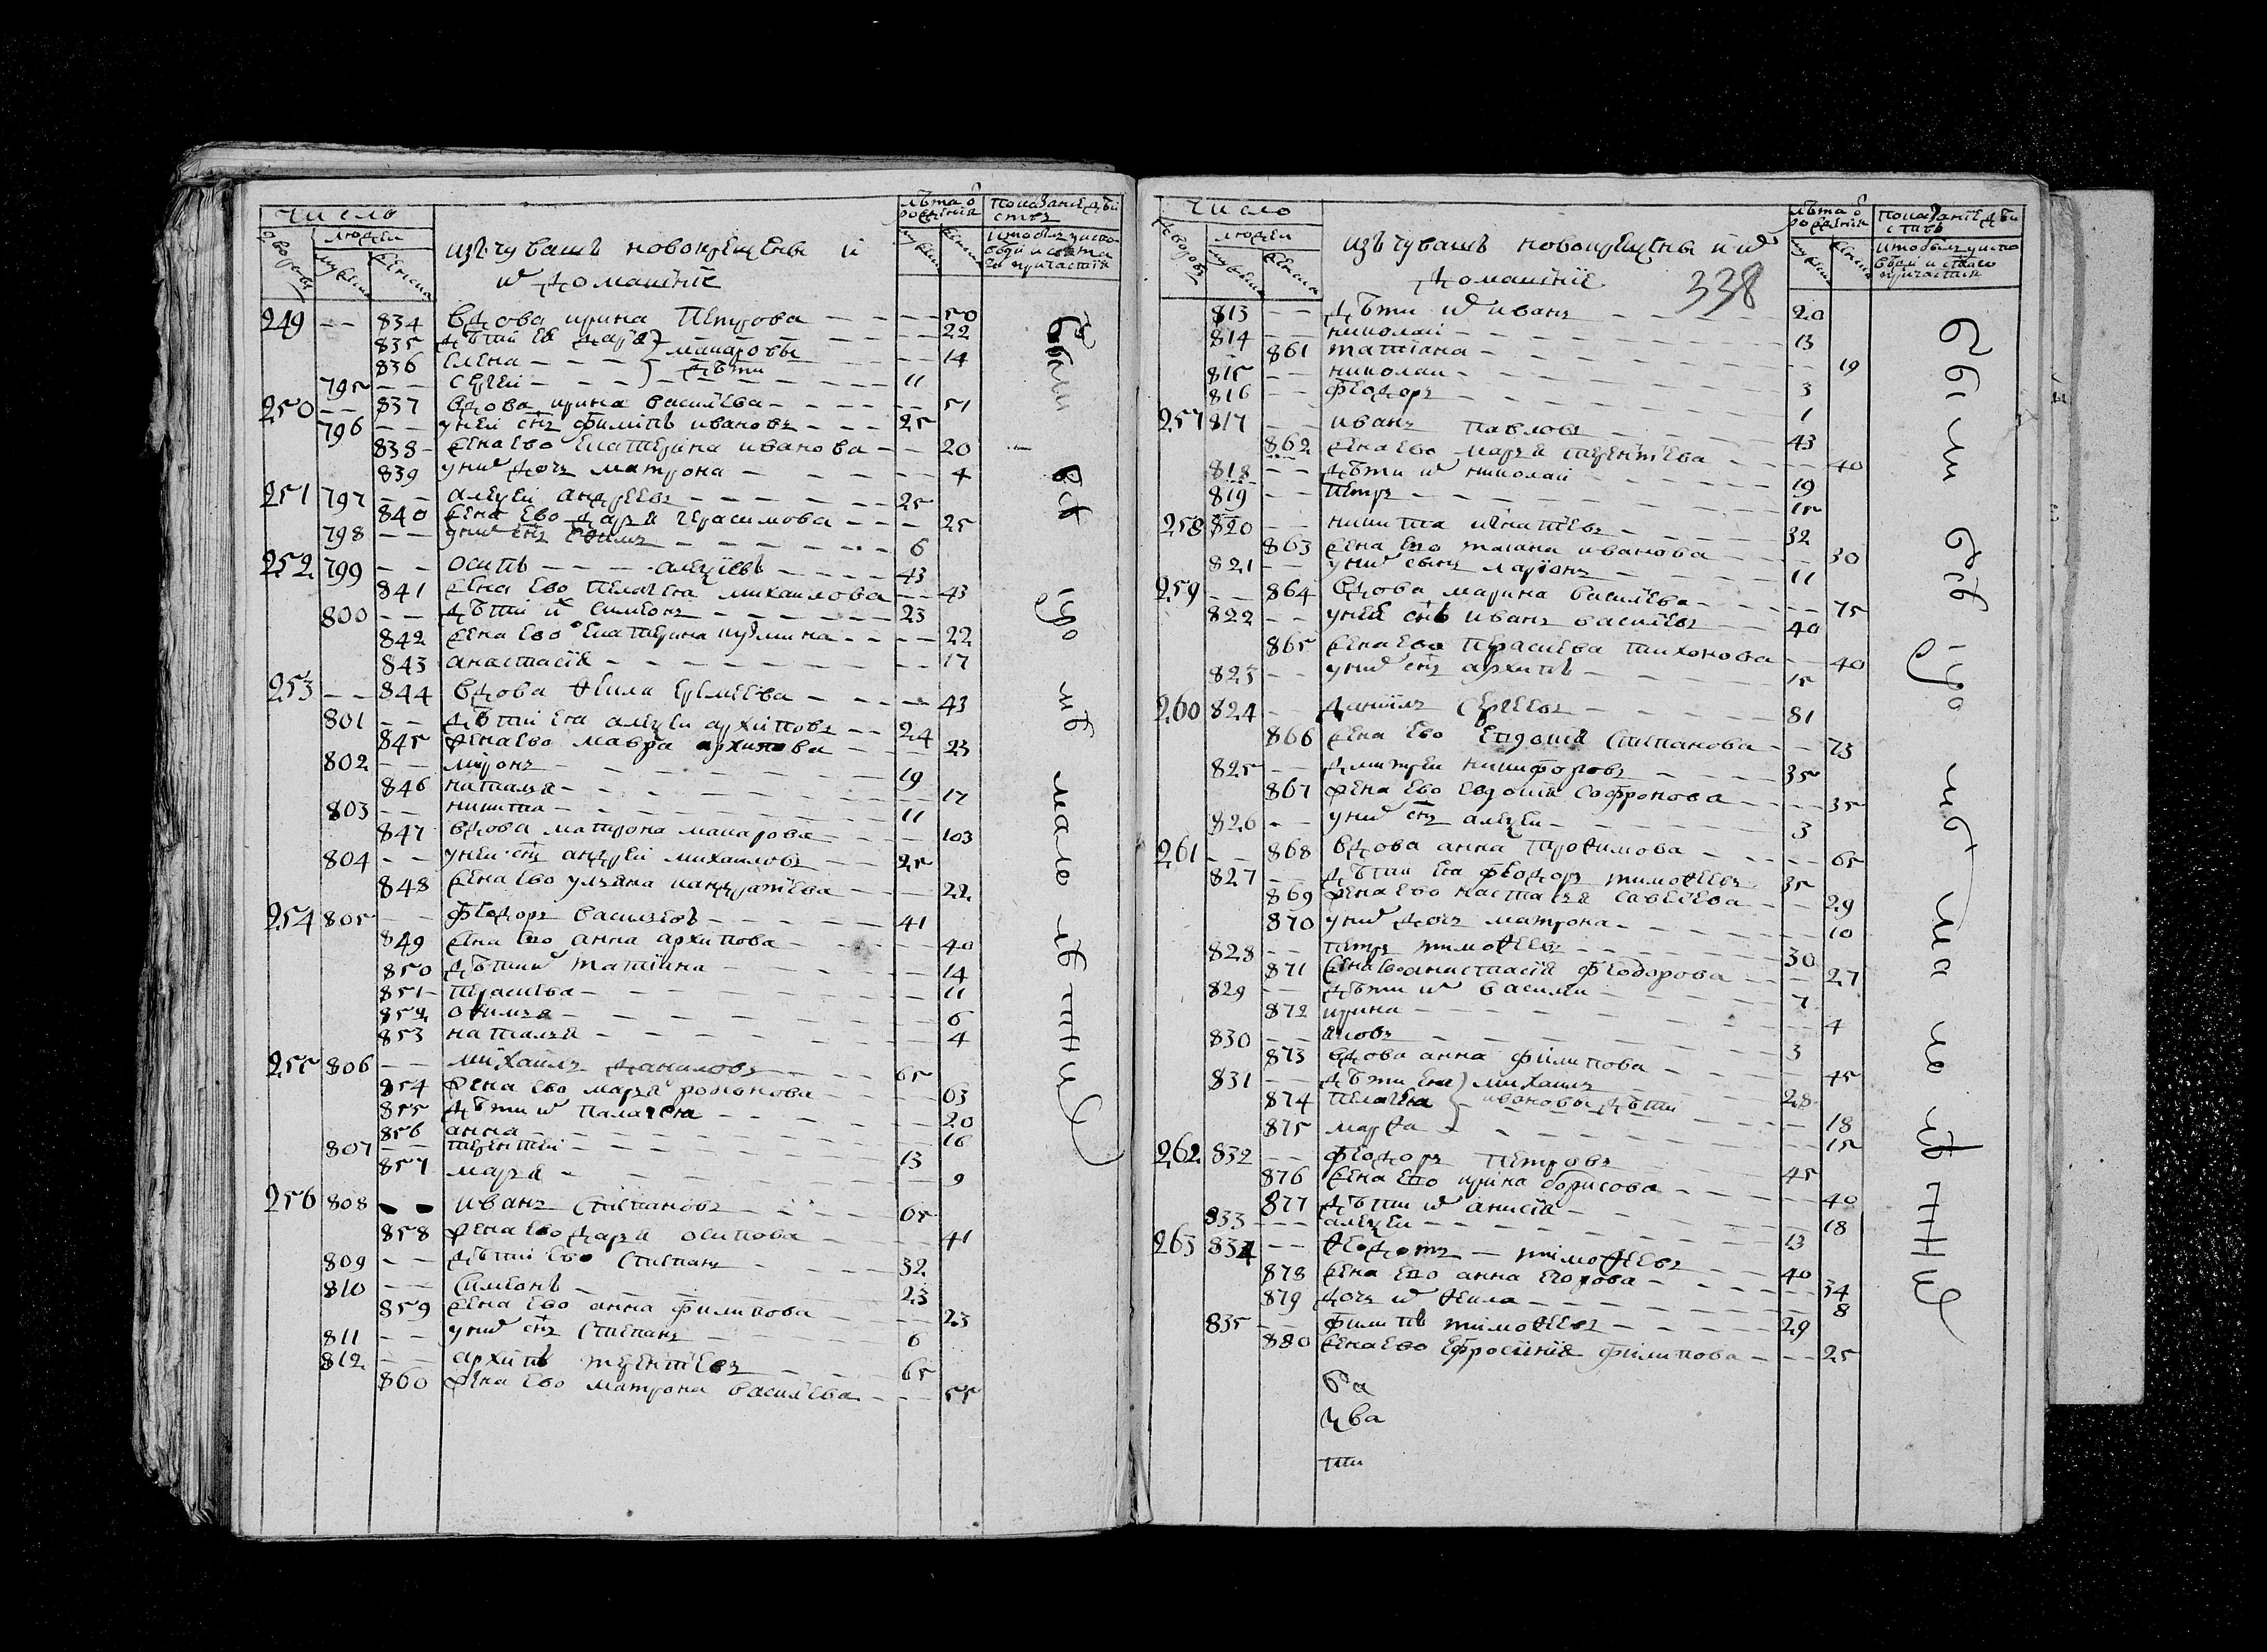 число
людеи
лѣта ѿ рождениіа
изъ чувашъ новокрещены и
иⷯ домашніе
249 — — 834 вдова ирина Петрова — — — 50
835 дѣти еѧ дарьѧ — — 22
836 елена — — — макаровы — — 14
795 — — сергеи — — — дѣти — — 11
250 — — 837 вдова ирина василева — — — 51
796 — — у неи снъ филипъ ивановъ — — — 25
838 жена ево екатерина иванова — — 20
839 у ниⷯ дочь матрона — — — 4
251 797 — — алеѯеи андреевъ — — — 25
840 жена ево дарьѧ герасимова — — — 25
798 — — у ниⷯ снъ ефимъ — — — 6
252 799 — — осипъ — — — алеѯіевъ — — — 43
841 жена ево пелагеѧ михаилова — — 43
800 — — дѣти иⷯ симеонъ — — — 23
842 жена ево екатерина кузмина — — — 22
843 анастасіѧ — — — 17
253 — — 844 вдова ѳекла еремеева — — — 43
801 — — дѣти еѧ алеѯеи архиповъ — — 24
845 жена ево мавра архипова — — — 23
802 — — миронъ — — — 19
846 натальѧ — — — 17
803 — — никита — — — 11
847 вдова матрона макарова — — — 103
804 — — у неи снъ андреи михаиловъ — — 25
848 жена ево ульѧна кандратева — — 22
254 805 — — феодоръ васильевъ — — — 41
849 жена ево анна архипова — — — 40
850 дѣти иⷯ татіана — — — 14
851 — парасиева — — — 11
852 ефимьѧ — — — 6
853 натальѧ — — — 4
255 806 — — михаилъ даниловъ — — — 65
854 жена ево марьѧ родионова — — — 63
855 дѣти иⷯ палагеѧ — — — 20
856 анна — — — 16
807 — терентеи — — — 13
857 марьѧ — — — 9
256 808 — — иванъ степановъ — — — 65
858 жена ево дарьѧ осипова — — — 41
809 — — дѣти ево степанъ — — — 32
810 — — симеонъ — — — 23
859 жена ево анна филипова — — — 23
811 — — у ниⷯ снъ степанъ — — 6
812 — — архипъ терентевъ — — — 65
860 жена ево матрона василева — — — 55
были всѣ у ѡ
малолѣтни
число
людеи
изъ чувашъ новокрещены и иⷯ
домашніе
338
813 — — дѣти иⷯ иванъ — — — 20
814 — — николаи — — — 13
861 татіана — — — 19
815 — — николаи — — — 3
816 — — феодоръ — — — 1
257 817 — — иванъ павловъ — — — 43
862 жена ево марьѧ терентева — — — 40
818 — — дѣти иⷯ николаи — — — 19
819 — — петръ — — — 15
258 820 — — никита игнатевъ — — — 32
863 жена ево татіана иванова — — — 30
821 — — у ниⷯ сынъ ларіонъ — — — 11
259 — — 864 вдова марина василева — — — 75
822 — — у неѧ снъ иванъ василевъ — — 40
865 жена ево перасиева тихонова — — 40
823 — — у ниⷯ снъ архипъ — — — 15
260 824 — — данилъ сергеевъ — — — 81
866 жена ево евдокиѧ степанова — — 73
825 — — дмитреи никифоровъ — — — 35
867 жена ево евдокиѧ софронова — — — 35
826 — — у ниⷯ снъ алеѯеи — — — 3
261 — — 868 вдова анна трофимова — — — 65
827 — дѣти еѧ феодоръ тимоѳеевъ 35
869 жена ево настасьѧ савелева — — 29
870 у ниⷯ дочь матрона — — — 10
828 — — петръ тимоѳеевъ — — — 30
871 жена ево анастасіѧ феодорова — — — 27
829 — — дѣти иⷯ василеи — — — 7
872 ирина — — — 4
830 — — ѧковъ — — — 3
873 вдова анна филипова — — — 45
831 — — дѣти еѧ михаилъ — 28
874 пелагеѧ ивановы дѣти — 18
875 марѳа — — — 15
262 832 — — феодоръ петровъ — — — 45
876 жена ево ирина борисова — — — 40
877 дѣти иⷯ анисіѧ — — — 18
833 — — — алеѯеи — — — 13
263 834 — — ѳедотъ — тимоѳеевъ — — 40
878 жена ево анна егорова — — — 34
879 дочь иⷯ ѳекла — — — 8
835 — — филипъ тимоѳеевъ — — — 29
880 жена ево ефросиниѧ филипова — — — 25
были всѣ у ѡ
малолѣтни